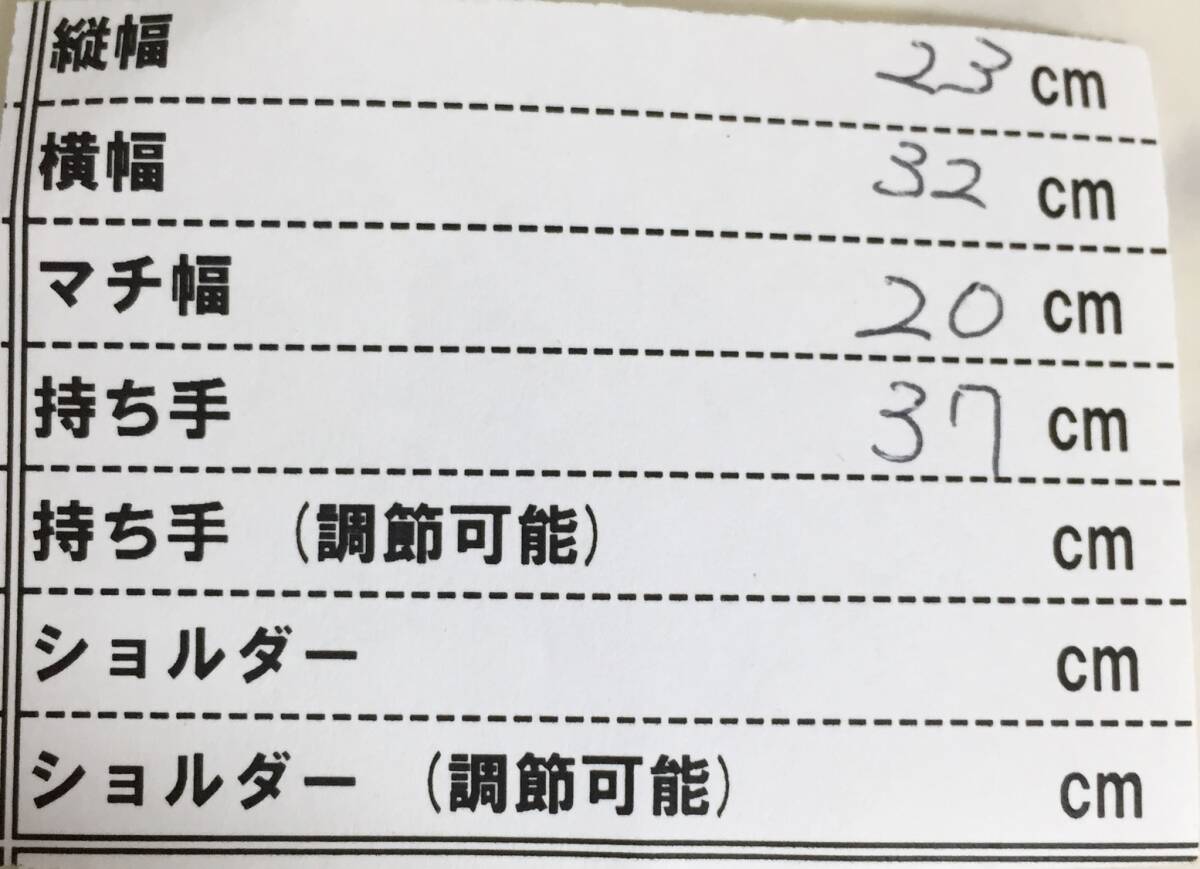 縦幅 23 cm
横幅 32 cm
マチ幅 20 cm
持ち手 37 cm
持ち手 (調節可能) cm
ショルダー cm
ショルダー (調節可能) cm